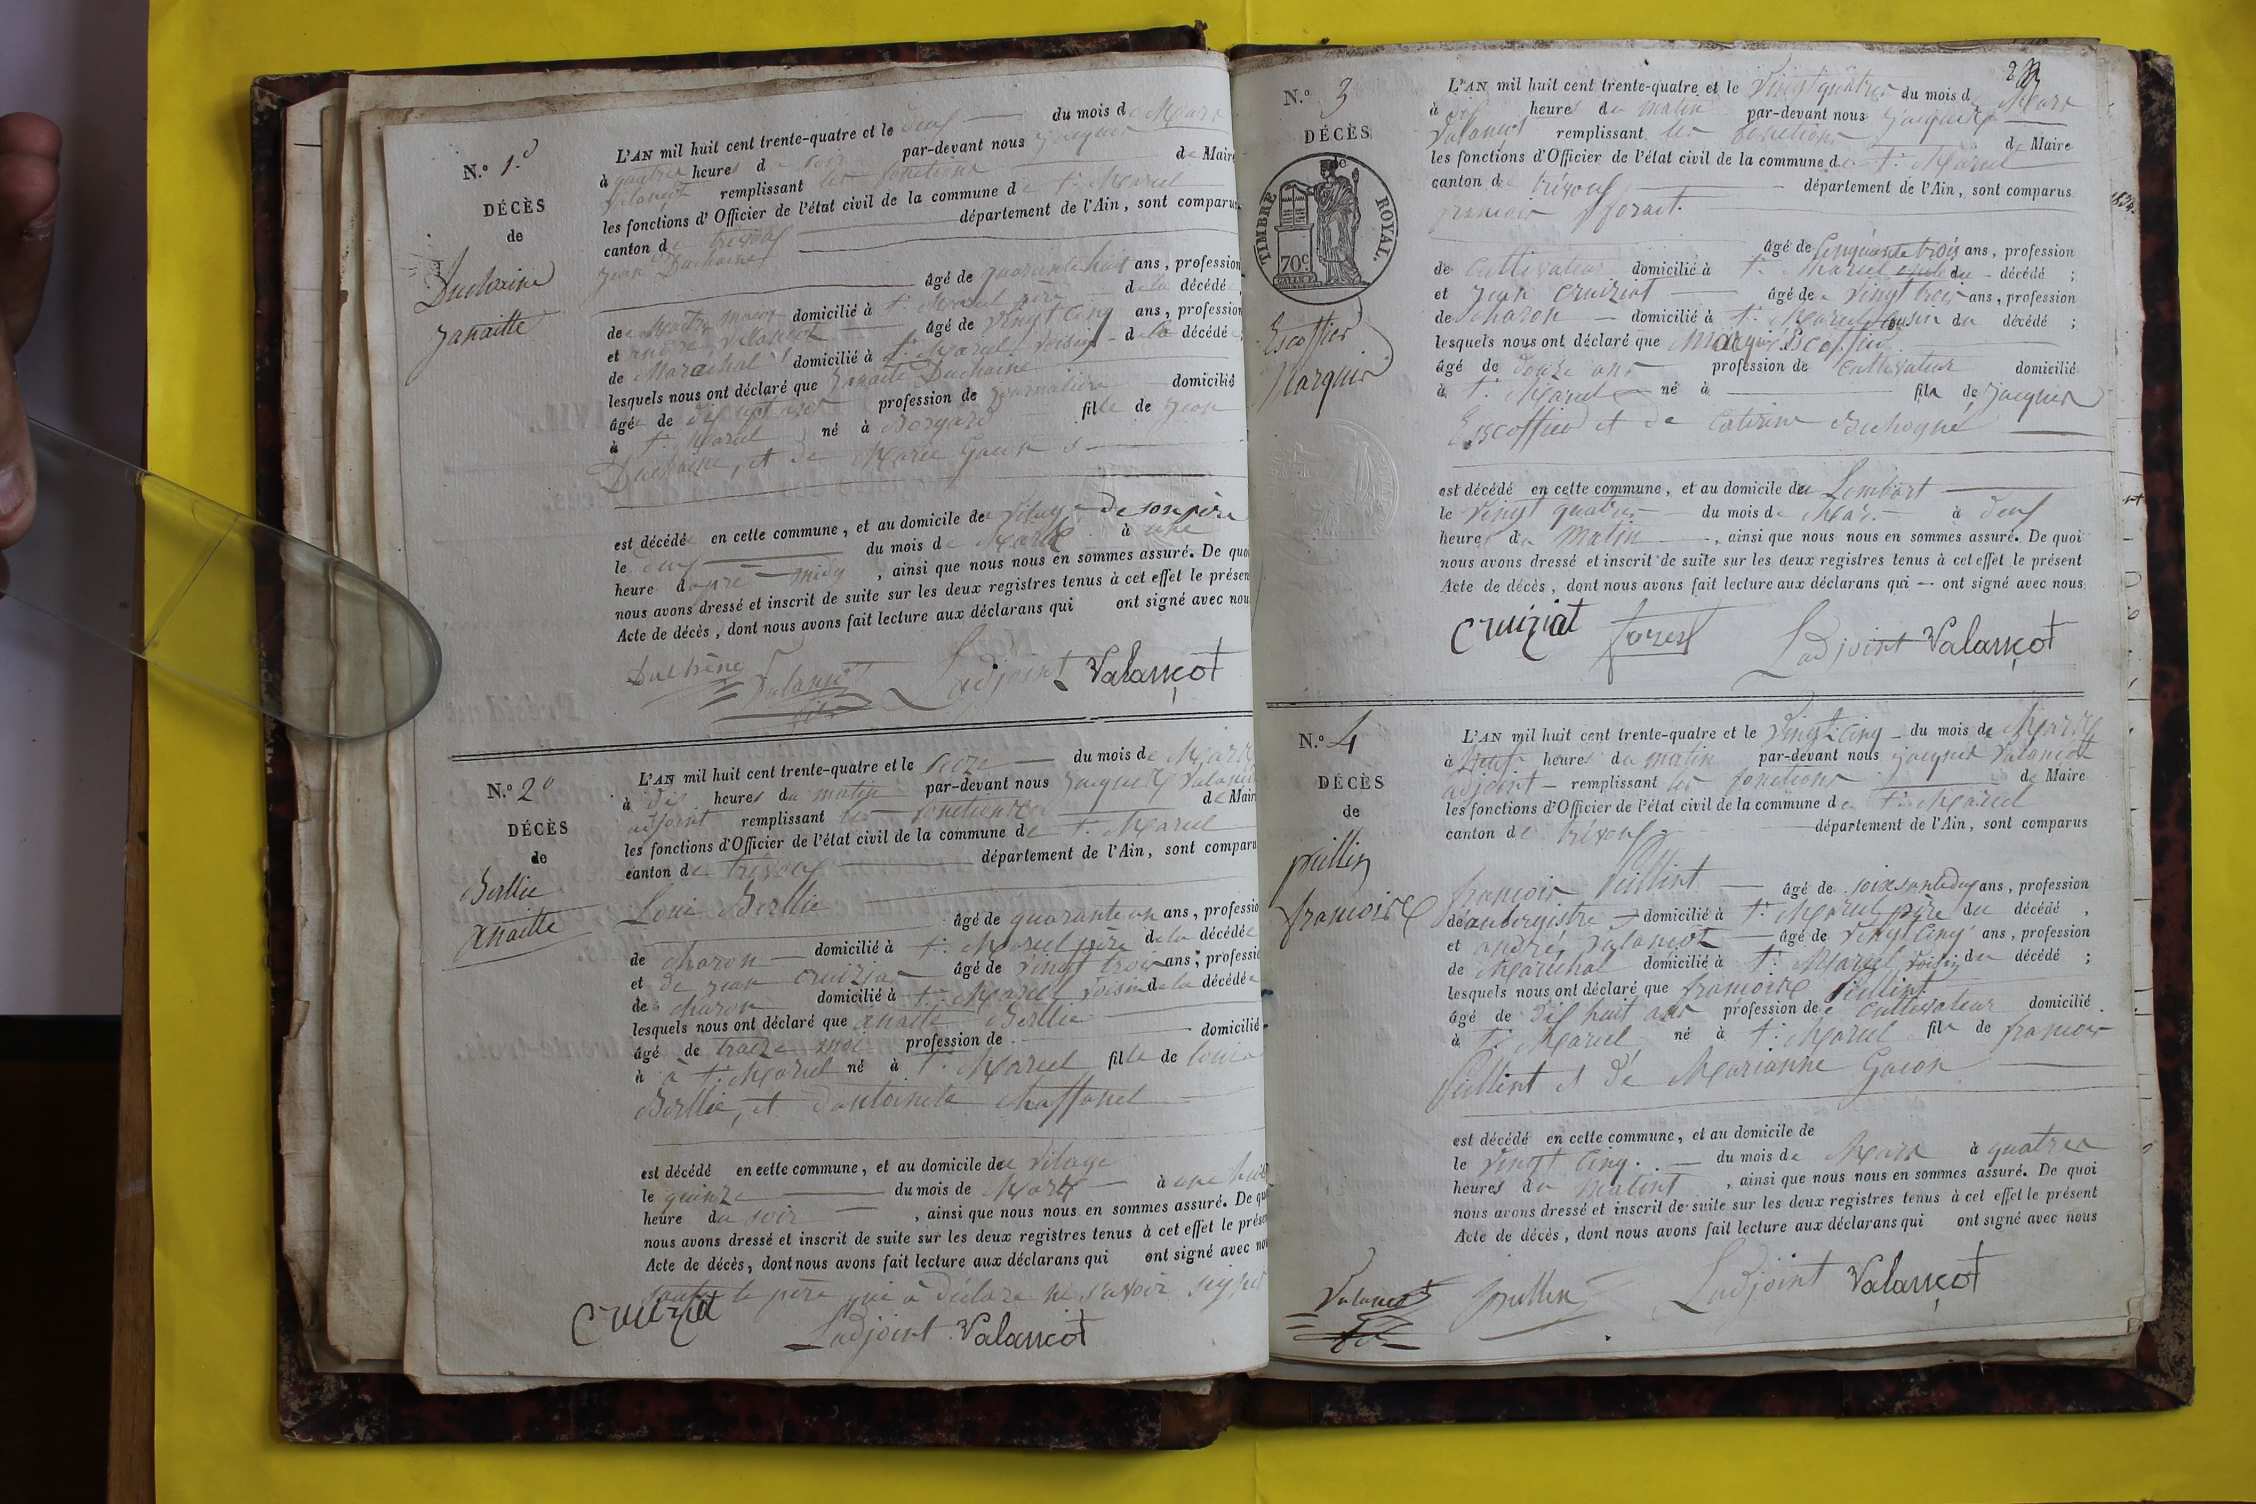 N.º 1.º
DÉCÈS
de
Duchaine
Janaitte
L'AN mil huit cent trente-quatre et le deux du mois de Mars
à quatres heures du soir par-devant nous Jacques
Valançot remplissant les fonctions de Maire
les fonctions d'Officier de l'état civil de la commune de St. Marcel
canton de trévoux département de l'Ain, sont comparus
Jean Duchaine
âgé de quarante huit ans, profession
de domicilié à St. Marcel père de la décédée
et andré Valançot âgé de vingt cinq ans, profession
de Maréchal domicilié à St. Marcel voisin de la décédée
lesquels nous ont déclaré que Janaite Duchaine
âgée de dix sept ans profession de journalière domicilié
à St. Marcel né à fille de Jean
Duchaine, et de Marie Gacon
est décédé en cette commune, et au domicile de vilage de son père
le deux du mois de Mars à une
heure , ainsi que nous nous en sommes assuré. De quoi
nous avons dressé et inscrit de suite sur les deux registres tenus à cet effet le présent
Acte de décès, dont nous avons fait lecture aux déclarans qui ont signé avec nou
Valançot Ladjoint Valançot
fils
N.º 2º
DÉCÈS
de
Berllie
anaitte
L'AN mil huit cent trente-quatre et le seize du mois de Mars
à dix heures du matin par-devant nous Jacques Valançot
adjoint remplissant les fonctions de Maire
les fonctions d'Officier de l'état civil de la commune de St. Marcel
canton de trévoux département de l'Ain, sont comparu
Loui Berllie
âgé de quarante un ans, professio
de charon domicilié à St. Marcel père de la décédée
et de jean cruiziat âgé de vingt trois ans, professi
de charon domicilié à St. Marcel voisin de la décédée
lesquels nous ont déclaré que anaite Berllie
âgé de traize moi profession de domicilié
à à St. Marcel né à St. Marcel fille de loui
Berllie, et dantoinete chaffanel
est décédé en cette commune, et au domicile de vilage
le quinze du mois de Mars à une
heure du soir , ainsi que nous nous en sommes assuré. De qu
nous avons dressé et inscrit de suite sur les deux registres tenus à cet effet le prése
Acte de décès, dont nous avons fait lecture aux déclarans qui ont signé avec no
le père qui à déclare ne savoir
Cruiziat Ladjoint Valançot
N.º 3
DÉCÈS
TIMBRE ROYAL
70c
Escoffier
Marquis
L'AN mil huit cent trente-quatre et le Vingt quatres du mois de Mars
à dix heures du matin par-devant nous Jacques
Valançot remplissant les fonctions de Maire
les fonctions d'Officier de l'état civil de la commune de St. Marcel
canton de trévoux département de l'Ain, sont comparus
francois
âgé de Cinquante trois ans, profession
de Cultivateur domicilié à St. Marcel décédé ;
et jean cruiziat âgé de vingt trois ans, profession
de charon domicilié à St. Marcel du décédé ;
lesquels nous ont déclaré que Escoffier
âgé de douze ans profession de Cultivateur domicilié
à St. Marcel né à fils de Jacques
Escoffier et de Catirine
est décédé en cette commune, et au domicile de Limbort
le vingt quatres du mois de Mars à deux
heures du matin , ainsi que nous nous en sommes assuré. De quoi
nous avons dressé et inscrit de suite sur les deux registres tenus à cet effet le présent
Acte de décès, dont nous avons fait lecture aux déclarans qui ont signé avec nous.
Cruiziat forest Ladjoint Valançot
N.º 4
DÉCÈS
de
pullin
francoise
L'AN mil huit cent trente-quatre et le Vingt Cinq du mois de Mars
à heures du matin par-devant nous jacques Valançot
adjoint remplissant les fonctions de Maire
les fonctions d'Officier de l'état civil de la commune de St. Marcel
canton de trévoux département de l'Ain, sont comparus
francois
âgé de soixante deux ans, profession
de aubergistre domicilié à St. Marcel père du décédé ,
et andré Valançot âgé de vingt Cinq ans, profession
de Maréchal domicilié à St. Marcel voisin du décédé ;
lesquels nous ont déclaré que francoise
âgé de dix huit ans profession de Cultivateur domicilié
à St. Marcel né à St. Marcel fils de francois
et de Marianne Gacon
est décédé en cette commune, et au domicile de
le vingt Cinq. du mois de Mars à quatres
heures du Matint , ainsi que nous nous en sommes assuré. De quoi
nous avons dressé et inscrit de suite sur les deux registres tenus à cet effet le présent
Acte de décès, dont nous avons fait lecture aux déclarans qui ont signé avec nous
Valançot Ladjoint Valançot
fils